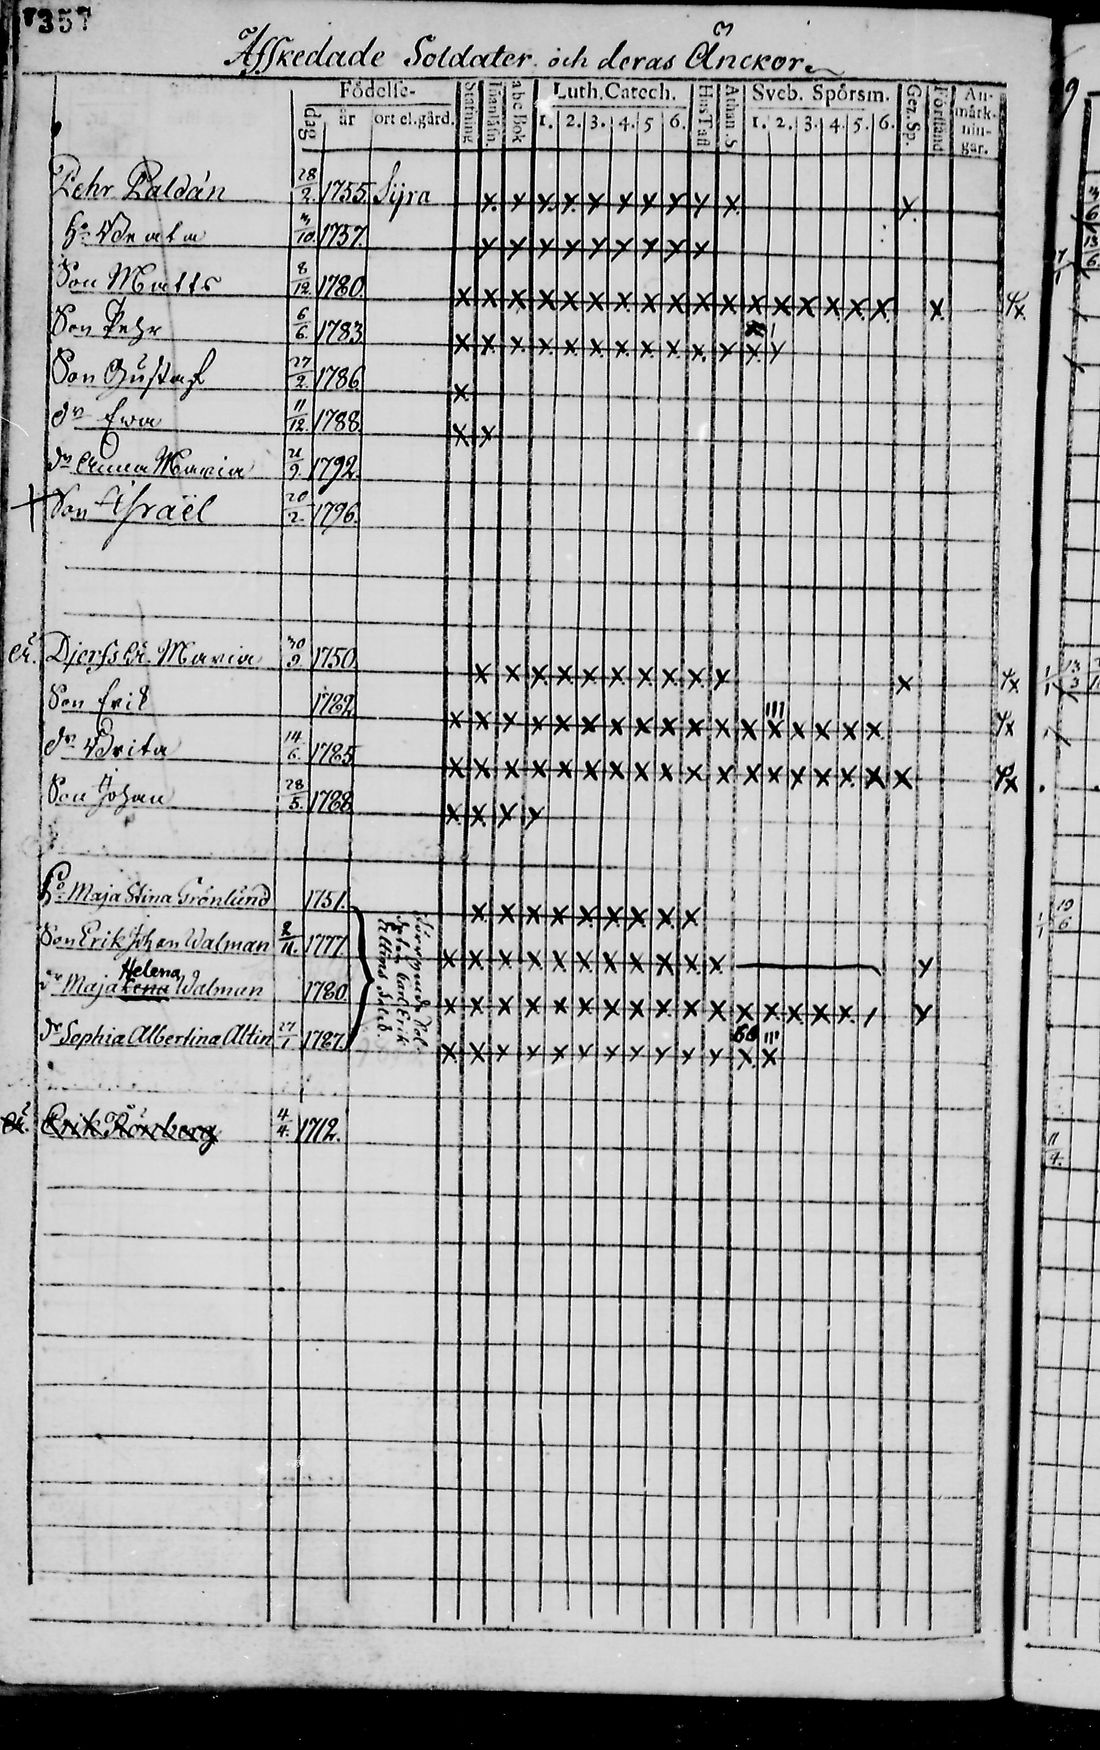 357
Afskedade Soldater och deras Änckor
Födelse-
dag
år
ort el. gård.
Stafning
Innanläsn.
abc Bok
Luth. Catech.
1. 2. 3. 4. 5 6.
Hus Tafl
Athan. S.
Sveb. Spörsm.
1. 2. 3. 4. 5. 6.
Ger. Sp.
Förstånd
An-
märk-
nin-
gar.
Pehr Paldán 28/2. 1755. Sijra
Hu Beata 3/10. 1757.
Son Matts 8/12. 1780.
Son Pehr 6/6. 1783
Son Gustaf 27/2. 1786
dr Ewa 11/12. 1788.
dr Anna Maria 21/9. 1792.
Son Israël 20/2. 1796.
Maria 30/9. 1750.
Son Erik
dr Brita 14/6. 1785
Son Johan 28/5. 1788
Maja Stina Grönlund 1751.
Son Erik Johan Walman 2/11. 1777
Helena
dr Maja Lena Walman 1780
dr Sophia Albertina Altin 27/1 1787.
Erik Rönberg 4/4. 1712.